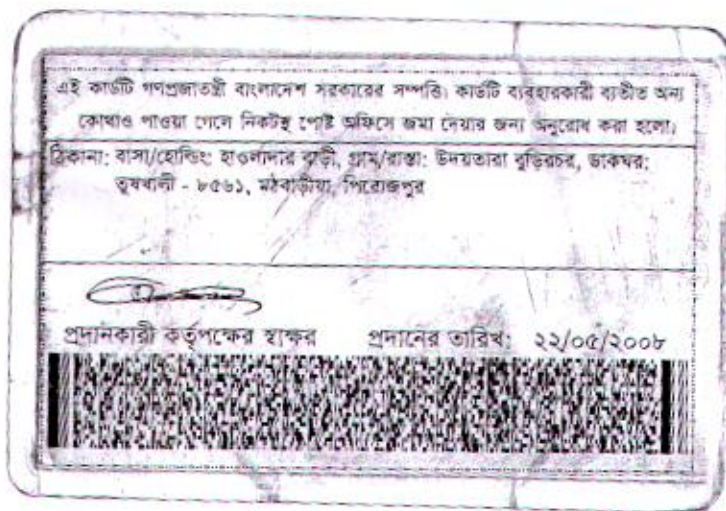 এই কার্ডটি গণপ্রজাতন্ত্রী বাংলাদেশ সরকারের সম্পত্তি। কার্ডটি ব্যবহারকারী ব্যতীত অন্য
কোথাও পাওয়া গেলে নিকটস্থ পোষ্ট অফিসে জমা দেয়ার জন্য অনুরোধ করা হলো।
ঠিকানা: বাসা/হোল্ডিং: হাওলাদার বাড়ী, গ্রাম/রাস্তা: উদয়তারা বুড়িরচর, ডাকঘর:
তুষখালী - ৮৫৬১, মঠবাড়ীয়া, পিরোজপুর
প্রদানকারী কর্তৃপক্ষের স্বাক্ষর প্রদানের তারিখ: ২২/০৫/২০০৮